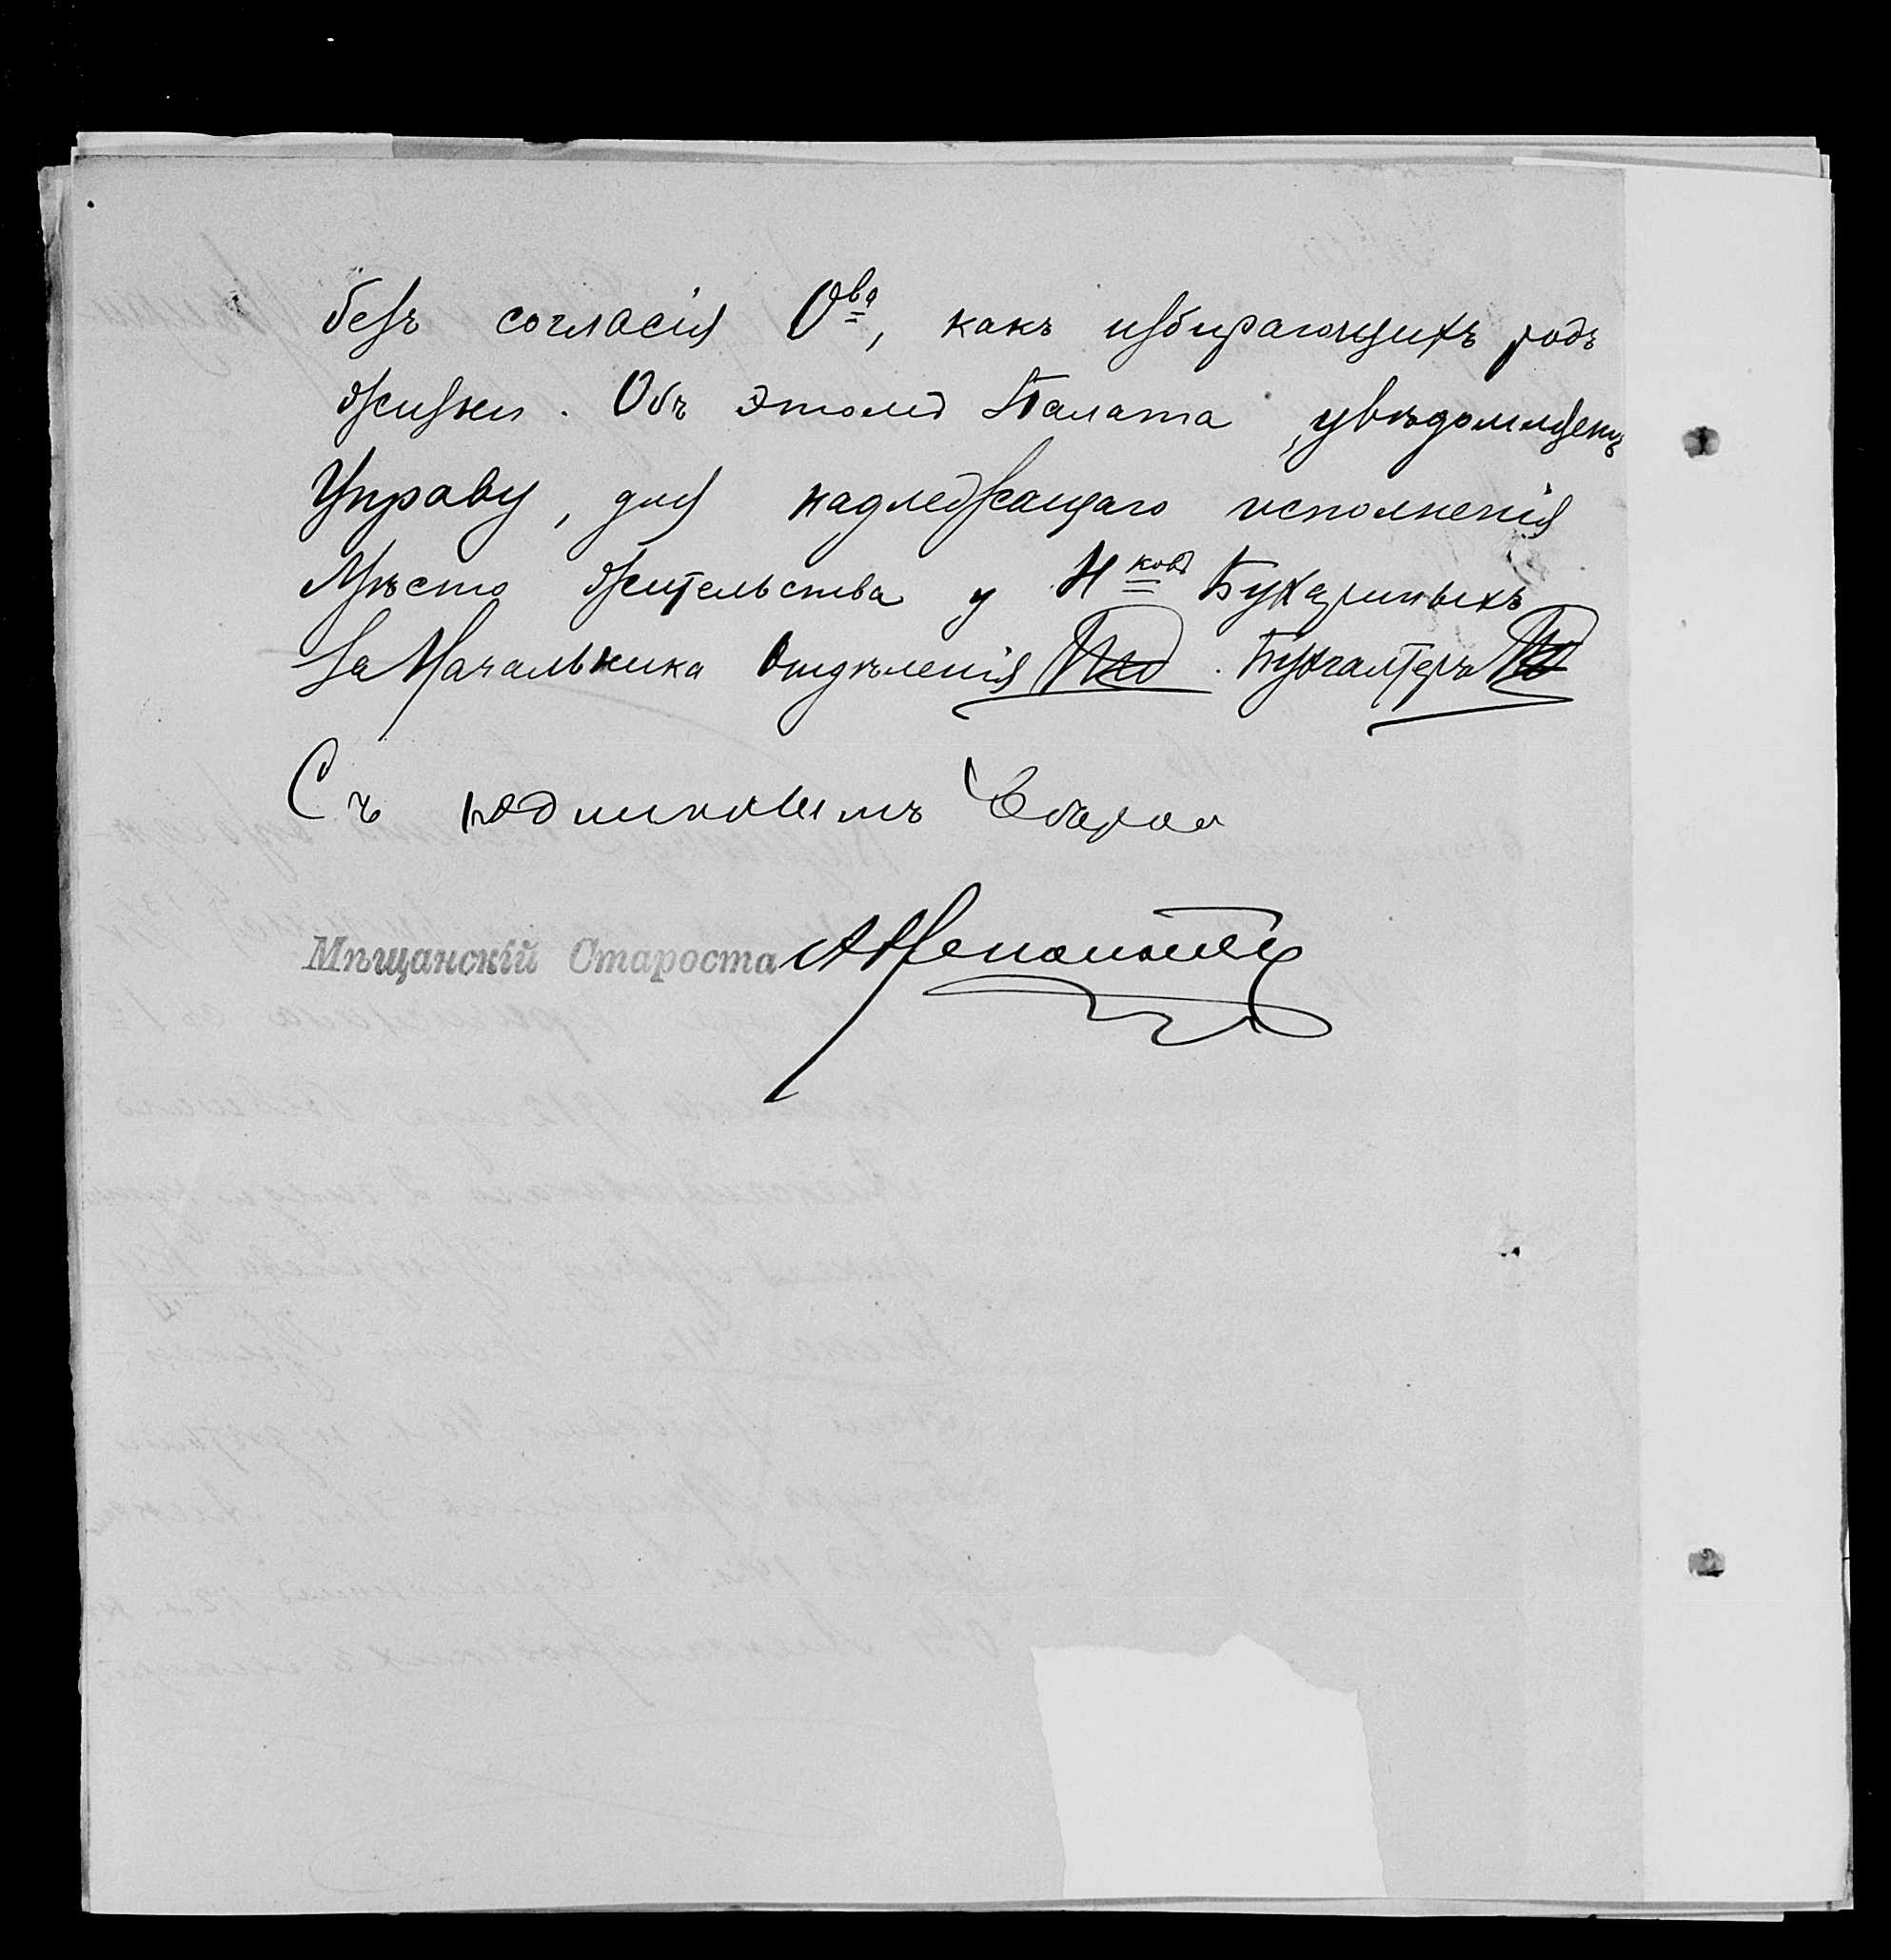 безъ согласія О<sup>ва</sup>, какъ избирающихъ родъ
жизни. Объ этомъ Палата увѣдомляетъ
Управу, для надлежащаго исполненія
Мѣсто жительства у Н<sup>ковъ</sup>
За Начальника Отдѣленія Бухгалтеръ
Съ подлиннымъ
Мѣщанскій Староста